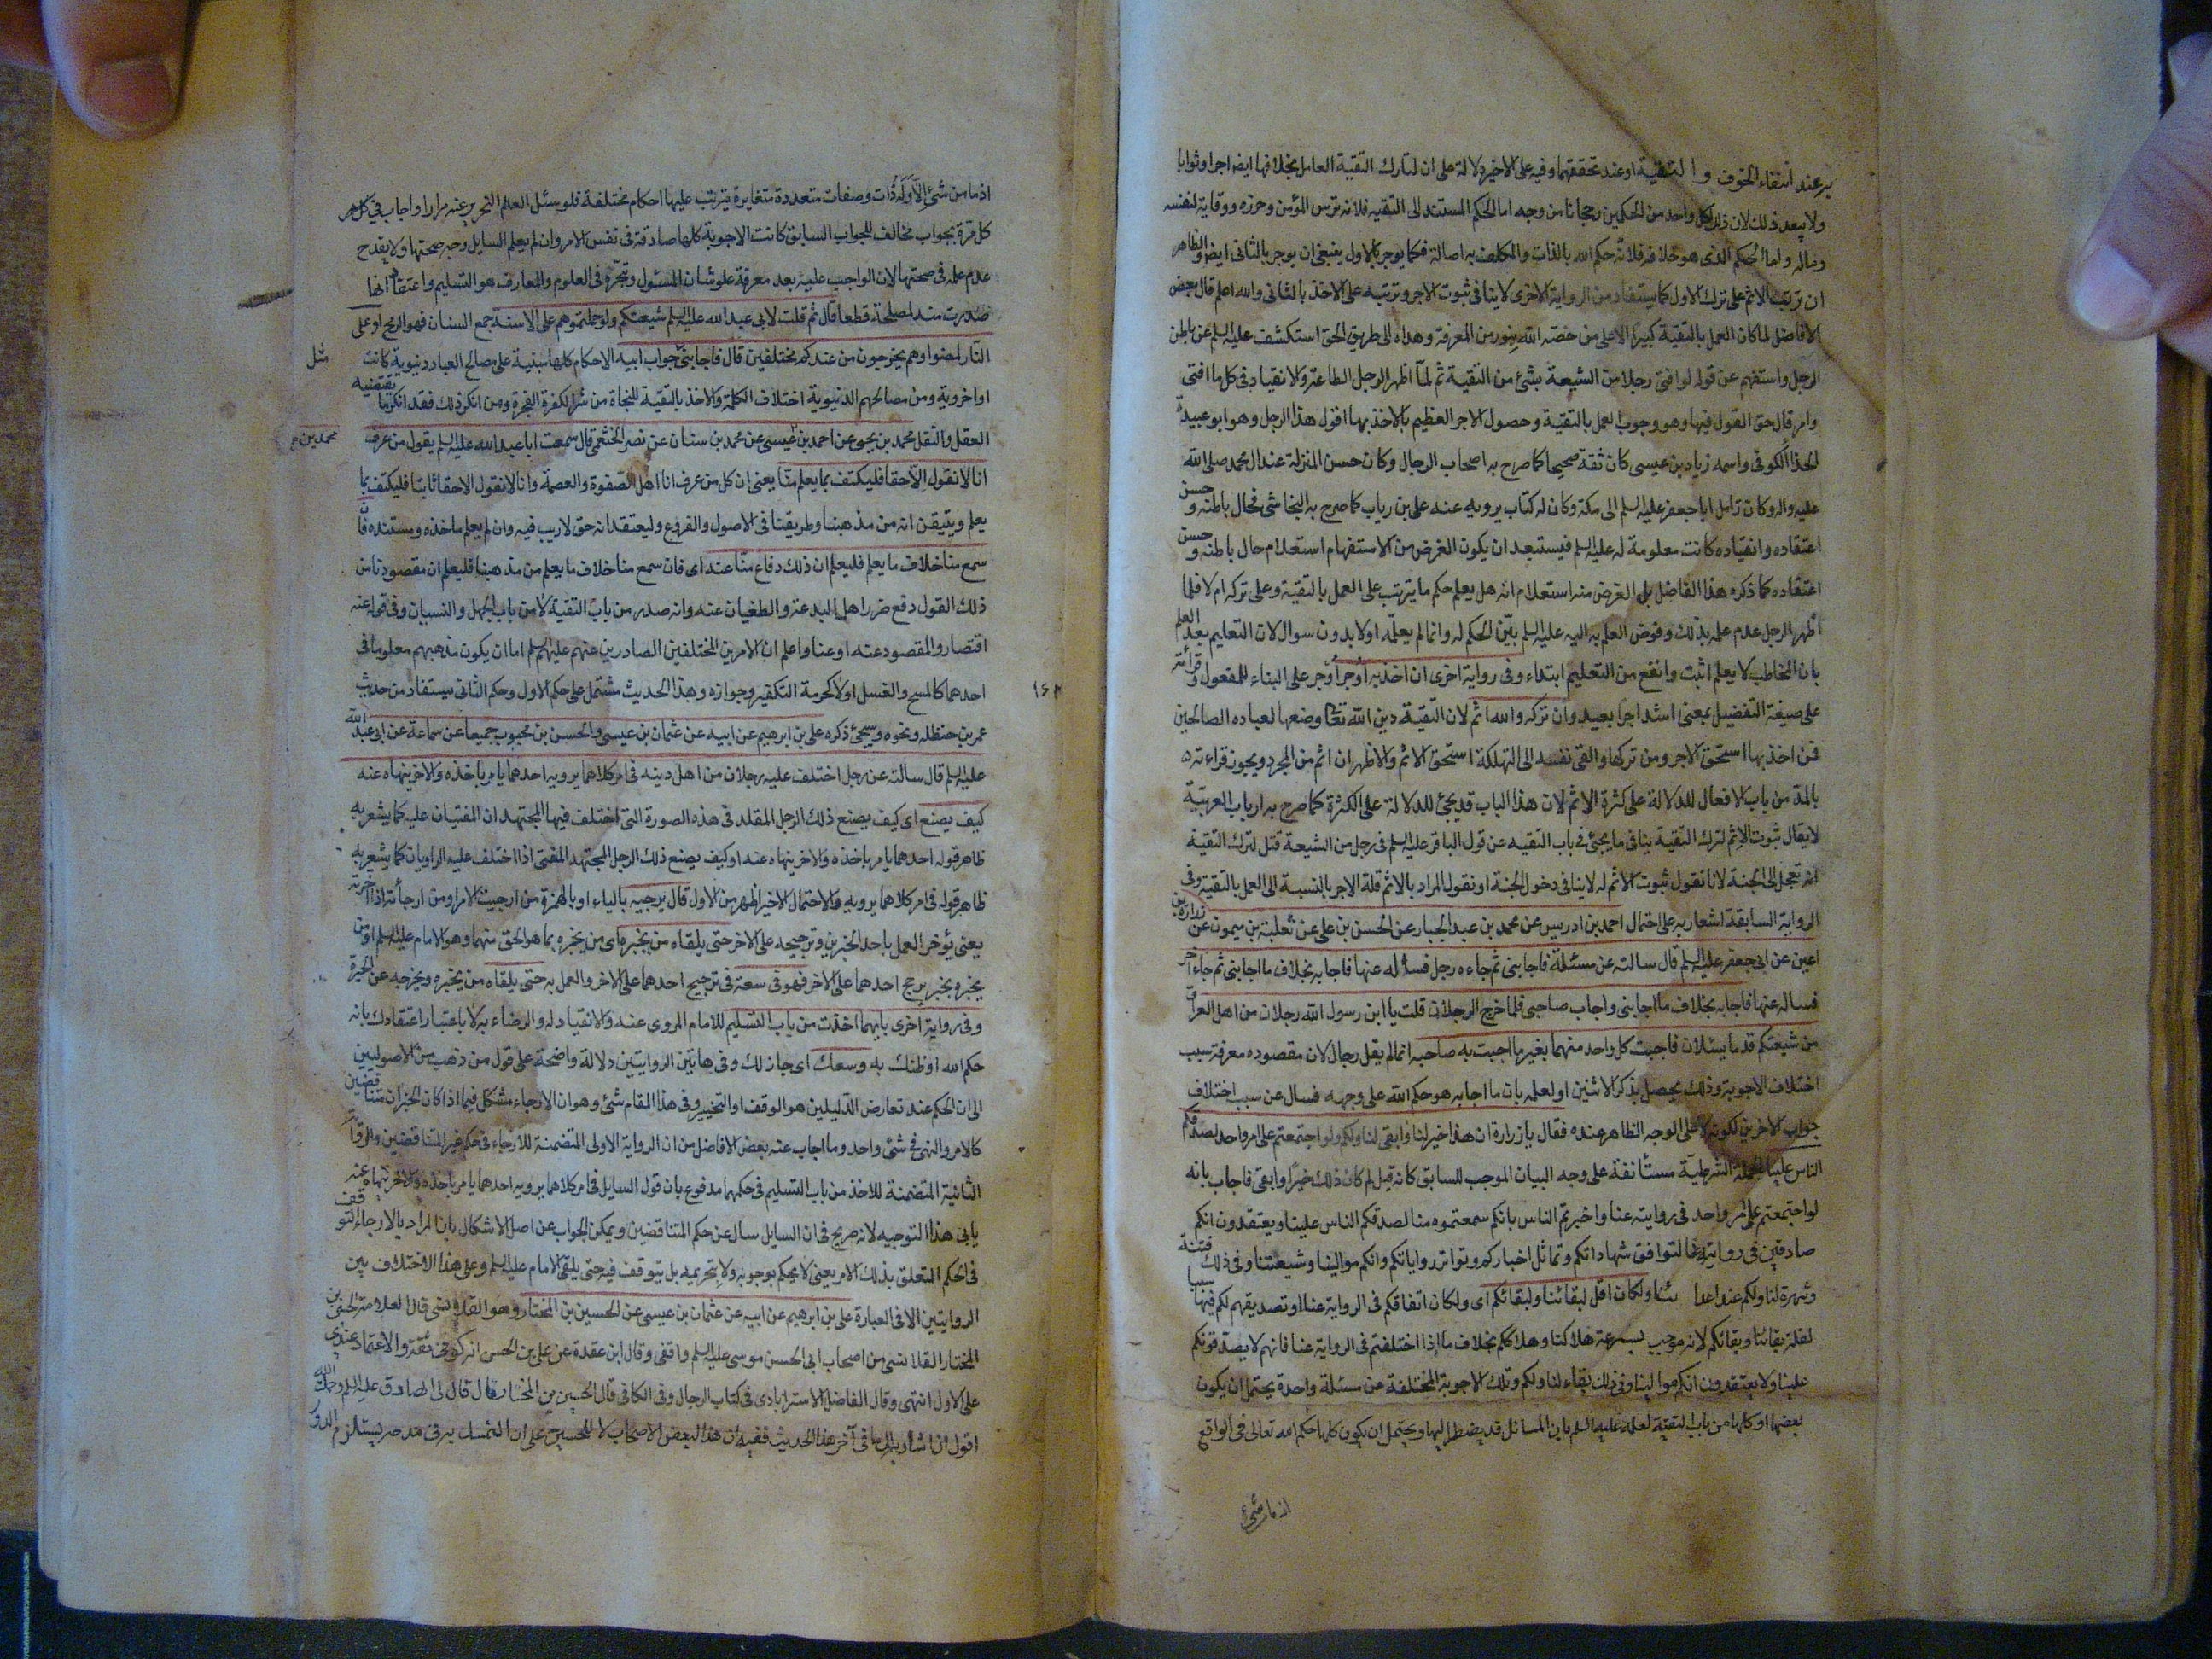 به عند انتفاء الخوف و التقية او عند تحققهما وفيه على الاخير دلالة على ان لتارك التقية العامل بخلافها ايضا اجرا وثوابا
ولا يبعد ذلك لان لكل واحد من الحكمين رجحانا من وجه اما الحكم المستند الى التقيه فلانه ترس المؤمن وحرزه ووقاية لنفسه
وماله واما الحكم الذى هو خلافه فلانّه حكم الله بالذات والمكلف به اصالة فكما يوجر بالاول ينبغى ان يوجر بالثانى ايضا والظاهر
ان ترتب الاثم على ترك الاول كما يستفاد من الرواية الاخرى لا ينافى ثبوت الاجر وترتبه على الاخذ بالثانى والله اعلم قال بعض
الافاضل لما كان العمل بالتقية كبيرا الا على من خصّه الله بنور من المعرفة وهداه الى طريق الحق استكشف عليه السلم عن باطن
الرجل واستفهم عن قوله لو افتى رجلا من الشيعة بشئ من التقية ثم لمّا اظهر الرجل الطاعة والانقياد فى كل ما افتى
وامر قال حق القول فيها وهو وجوب العمل بالتقية وحصول الاجر العظيم بالاخذ بها اقول هذا الرجل وهو ابو عبيدة
الحذا الكوفى واسمه زياد بن عيسى كان ثقة صحيحا كما صرح به اصحاب الرجال وكان حسن المنزلة عند ال محمد صلى الله
عليه واله وكان زامل ابا جعفر عليه السلم الى مكة وكان له كتاب يرويه عنه على بن رياب كما صرح به النجاشى فحال باطنه وحسن
اعتقاده وانقياده كانت معلومة له عليه السلم فيستبعد ان يكون الغرض من الاستفهام استعلام حال باطنه وحسن
اعتقاده كما ذكره هذا الفاضل بل الغرض منه استعلام انه هل يعلم حكم ما يترتب على العمل بالتقية وعلى تركه ام لا فلما
اظهر الرجل عدم علمه بذلك وفوض العلم به اليه عليه السلم بيّن الحكم له وانما لم يعلّمه اولا بدون سوال لان التعليم بعد العلم
بان المخاطب لا يعلم اثبت وانفع من التعليم ابتداء وفى رواية اخرى ان اخذ به اوجر اوجر على البناء للمفعول وقرائته
على صيغة التفضيل بمعنى اشد اجرا بعيد وان تركه والله اثم لان التقية دين الله تعالى وضعها لعباده الصالحين
فمن اخذ بها استحق الاجر ومن تركها والقى نفسه الى التهلكة استحق الاثم والاظهر ان اثم من المجرد ويجوز قراءته
بالمد من باب الافعال للدلالة على كثرة الاثم لان هذا الباب قد يجئ للدلالة على الكثرة كما صرح به ارباب العربيّة
لا يقال ثبوت الاثم لترك التقية ينافى ما يجئ فى باب التقيه عن قول الباقر عليه السلم فى رجل من الشيعة قتل لترك التقية
انه تعجل الى الجنة لانا نقول ثبوت الاثم له لا ينافى دخول الجنة او نقول المراد بالاثم قلة الاجر بالنسبة الى العمل بالتقية وفى
الرواية السابقة اشعار به على احتمال احمد بن ادريس عن محمد بن عبد الجبار عن الحسن بن على عن ثعلبة بن ميمون عن زرارة بن
اعين عن ابى جعفر عليه السلم قال سالته عن مسئلة فاجابنى ثم جاءه رجل فسأله عنها فاجابه بخلاف ما اجابنى ثم جاء اخر
فساله عنها فاجابه بخلاف ما اجابنى واجاب صاحبى فلما خرج الرجلان قلت يا ابن رسول الله رجلان من اهل العراق
من شيعتكم قدما يسئلان فاجبت كل واحد منهما بغير ما اجبت به صاحبه انما لم يقل رجال لان مقصوده معرفة سبب
اختلاف الاجوبة وذلك يحصل بذكر الاثنين او لعلمه بان ما اجابه هو حكم الله على وجهه فسال عن سبب اختلاف
جواب الاخرين لكونه لا على الوجه الظاهر عنده فقال يا زرارة ان هذا خير لنا وابقى لنا ولكم ولو اجتمعتم على امر واحد لصدقكم
الناس علينا الجملة الشرطيّة مستأنفة على وجه البيان الموجب للسابق كانه قيل لم كان ذلك خيرًا وابقى فاجاب بانه
لو اجتمعتم على امر واحد فى روايته عنا واخبرتم الناس بانكم سمعتموه منا لصدقكم الناس علينا ويعتقدون انكم
صادقين فى روايته عنا لتوافق شهاداتكم وتماثل اخباركم وتواتر رواياتكم وانكم موالينا وشيعتنا وفى ذلك فتنة
وشهرة لنا ولكم عند اعدائنا ولكان اقل لبقائنا ولبقائكم اى ولكان اتفاقكم فى الرواية عنا او تصديقهم لكم فيها سببا
لقلة بقائنا وبقائكم لانه موجب لسرعة هلاكنا وهلاككم بخلاف ما اذا اختلفتم فى الرواية عنا فانهم لا يصدقونكم
علينا ولا يعتقدون انكم موالينا وفى ذلك بقاء لنا ولكم وتلك الاجوبة المختلفة عن مسئلة واحدة يحتمل ان يكون
بعضها او كلها من باب التقية لعلمه عليه السلم بان المسائل قد يضطر اليها ويحتمل ان يكون كلها حكم الله تعالى فى الواقع
اذ ما من شئ
اذ ما من شئ الا وله ذات وصفات متعددة متغايرة يترتب عليها احكام مختلفة فلو سئل العلم النحرير عنه مرارا واجاب فى
كل مرة بجواب مخالف للجواب السابق كانت الاجوبة كلها صادقة فى نفس الامر وان لم يعلم السايل وجه صحتها ولا يقدح
عدم علمه فى صحتها لان الواجب عليه بعد معرفة علو شان المسئول وتبحّره فى العلوم والمعارف هو التسليم واعتقاد انها
صدرت منه لمصلحة قطعا قال ثم قلت لابى عبد الله عليه السلم شيعتكم لو حملتموهم على الاسنة جمع السنان فهو الرمح او على
النّار لمضوا وهم يخرجون من عندكم مختلفين قال فاجابنى بمثل جواب ابيه الاحكام كلها مبنية على مصالح العباد دنيوية كانت
او اخروية ومن مصالحهم الدنيوية اختلاف الكلمة والاخذ بالتقية للنجاة من شر الكفرة الفجرة ومن انكر ذلك فقد انكر ما يقتضيه
العقل والنقل محمد بن يحيى عن احمد بن محمد بن عيسى عن محمد بن سنان عن نصر الخثعمى قال سمعت ابا عبد الله عليه السلم يقول من عرف
انا لا نقول الّا حقا فليكتف بما يعلم منّا يعنى ان كل من عرف انا اهل الصّفوة والعصمة وانا لا نقول الا حقا ثابتا فليكتف بما
يعلم ويتيقن انه من مذهبنا وطريقتنا فى الاصول والفروع وليعتقد انه حق لا ريب فيه وان لم يعلم ماخذه ومستنده فان
سمع منا خلاف ما يعلم فليعلم ان ذلك دفاع منّا عنه اى فان سمع منا خلاف ما يعلم من مذهبنا فليعلم ان مقصودنا من
ذلك القول دفع ضرر اهل البدعة والطغيان عنه وانه صدر من باب التقية لا من باب الجهل والنسيان وفى قوله عنه
اقتصار والمقصود عنه او عنا واعلم ان الامرين المختلفين الصادرين عنهم عليهم السلم اما ان يكون مذهبهم معلوما فى
احدهما كالمسح والغسل اولا كحرمة التكفير وجوازه وهذا الحديث مشتمل على حكم الاول وحكم الثانى يستفاد من حديث
عمر بن حنظله ونحوه وسيجئ ذكره على بن ابرهيم عن ابيه عن عثمان بن عيسى والحسن بن محبوب جميعا عن سماعة عن ابى عبد الله
عليه السلم قال سالته عن رجل اختلف عليه رجلان من اهل دينه فى امر كلاهما يرويه احدهما يامر باخذه والاخر ينهاه عنه
كيف يصنع اى كيف يصنع ذلك الرجل المقلد فى هذه الصورة التى اختلف فيها المجتهدان المفتيان عليه كما يشعر به
ظاهر قوله احدهما يامر باخذه والاخر ينهاه عنه او كيف يصنع ذلك الرجل المجتهد المفتى اذا اختلف عليه الراويان كما يشعر به
ظاهر قوله فى امر كلاهما يرويه والاحتمال الاخير اظهر من الاول قال يرجيه بالياء او بالهمزة من ارجيت الامر او من ارجأته اذا اخرته
يعنى يؤخر العمل باحد الخبرين وترجيحه على الاخر حتى يلقاه من يخبره اى من يخبره بما هو الحق منهما وهو الامام عليه السلم او من
يخبره بخبر يرجح احدهما على الاخر فهو فى سعة فى ترجيح احدهما على الاخر والعمل به حتى يلقاه من يخبره ويخرجه عن الحيرة
وفى رواية اخرى بايهما اخذت من باب التسليم للامام المروى عنه والانقياد له والرضاء به لا باعتبار اعتقادك بانه
حكم الله او ظنك به وسعك اى جاز لك وفى هاتين الروايتين دلالة واضحة على قول من ذهب من الاصوليين
الى ان الحكم عند تعارض الدّليلين هو الوقف او التخيير وفى هذا المقام شئ وهو ان الارجاء مشكل فيما اذا كان الخبران متناقضين
كالامر والنهى فى شئ واحد وما اجاب عنه بعض الافاضل من ان الرواية الاولى المتضمنة للارجاء فى حكم غير المتناقضين والرواية
الثانية المتضمنة للاخذ من باب التسليم فى حكمهما مدفوع بان قول السايل فى امر كلاهما يرويه احدهما يامر باخذه والاخر ينهاه عنه
يابى هذا التوجيه لانه صريح فى ان السايل سال عن حكم المتناقضين ويمكن الجواب عن اصل الاشكال بان المراد بالارجاء التوقف
فى الحكم المتعلق بذلك الامر يعنى لا يحكم بوجوبه ولا بتحريمه بل يتوقف فيه حتى يلقى الامام عليه السلم وعلى هذا لا اختلاف بين
الروايتين الا فى العبارة على بن ابرهيم عن ابيه عن عثمان بن عيسى عن الحسين بن المختار وهو القلانسى قال العلامة الحسين بن
المختار القلانسى من اصحاب ابى الحسن موسى عليه السلم واقفى وقال ابن عقدة عن على بن الحسن انه كوفى ثقة والاعتماد عندى
على الاول انتهى وقال الفاضل الاسترابادى فى كتاب الرجال وفى الكافى قال الحسين بن المختار قال قال لى الصادق عليه السلم رحمك الله
اقول ان اشار به الى ما فى آخر هذا الحديث ففيه ان هذا لبعض الاصحاب لا للحسين على ان التمسك به فى مدحه يستلزم الدور
مثل
محمد بن
١٤٢